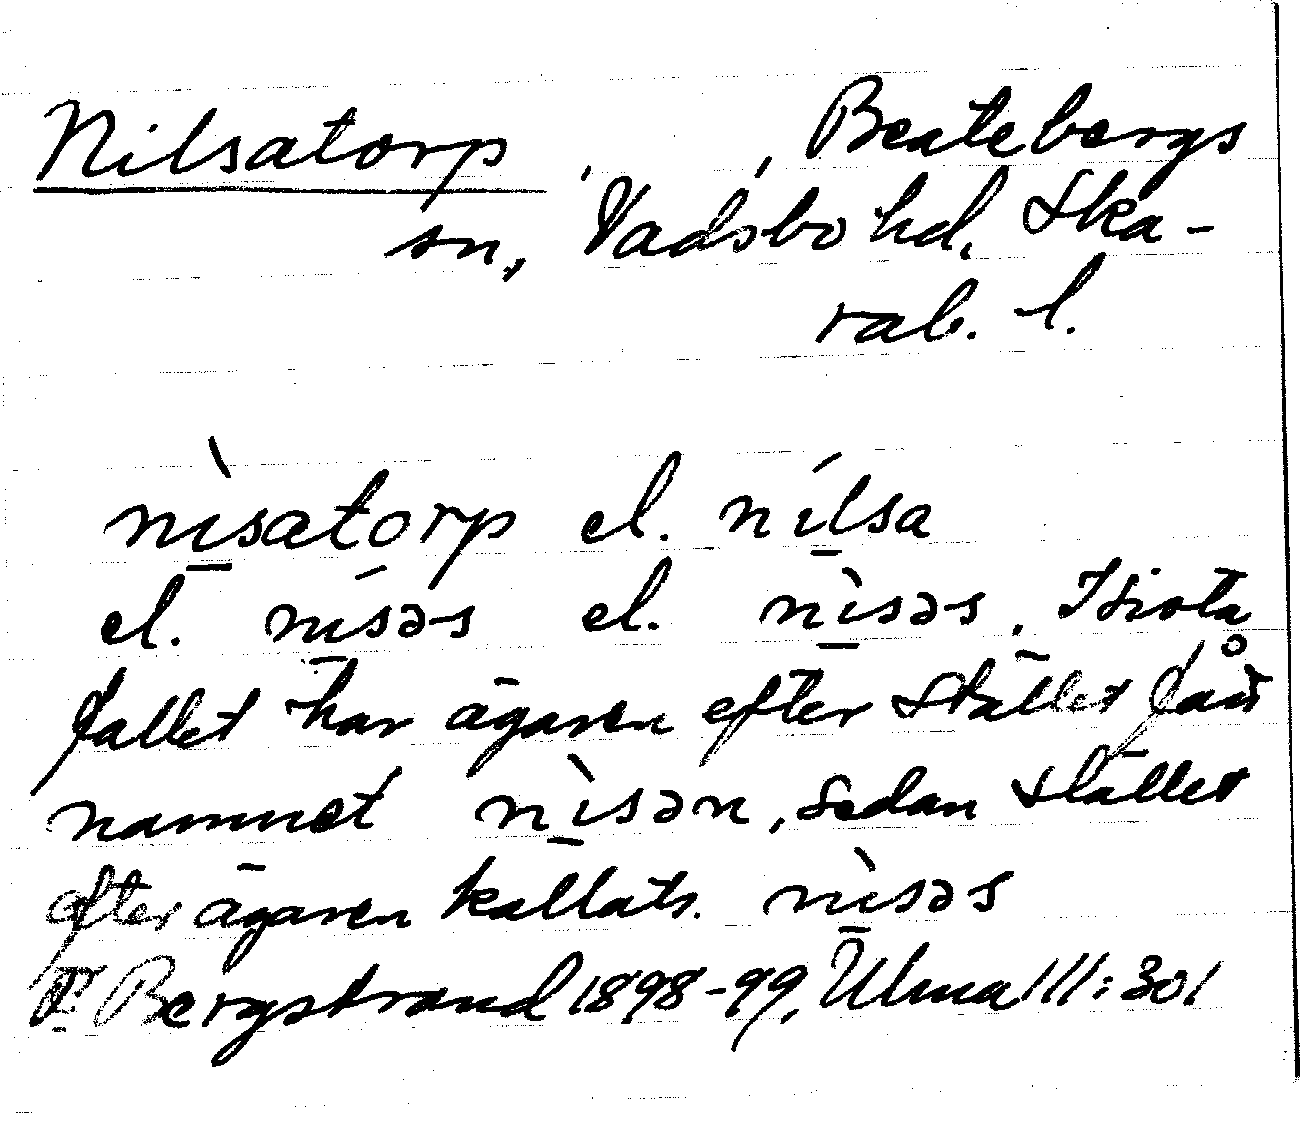 Nilsatorp , , Beatebergs
sn, Vadsbo hd. Ska-
rab. l.
nìsatorp el. nílsa
el. nísəs el. nìsəs. I sista
fallet har ägaren efter stället fått
namnet nìsən, sedan stället
efter ägaren kallats. nìsəs
Bergstrand 1898-99, Ulma 111:301